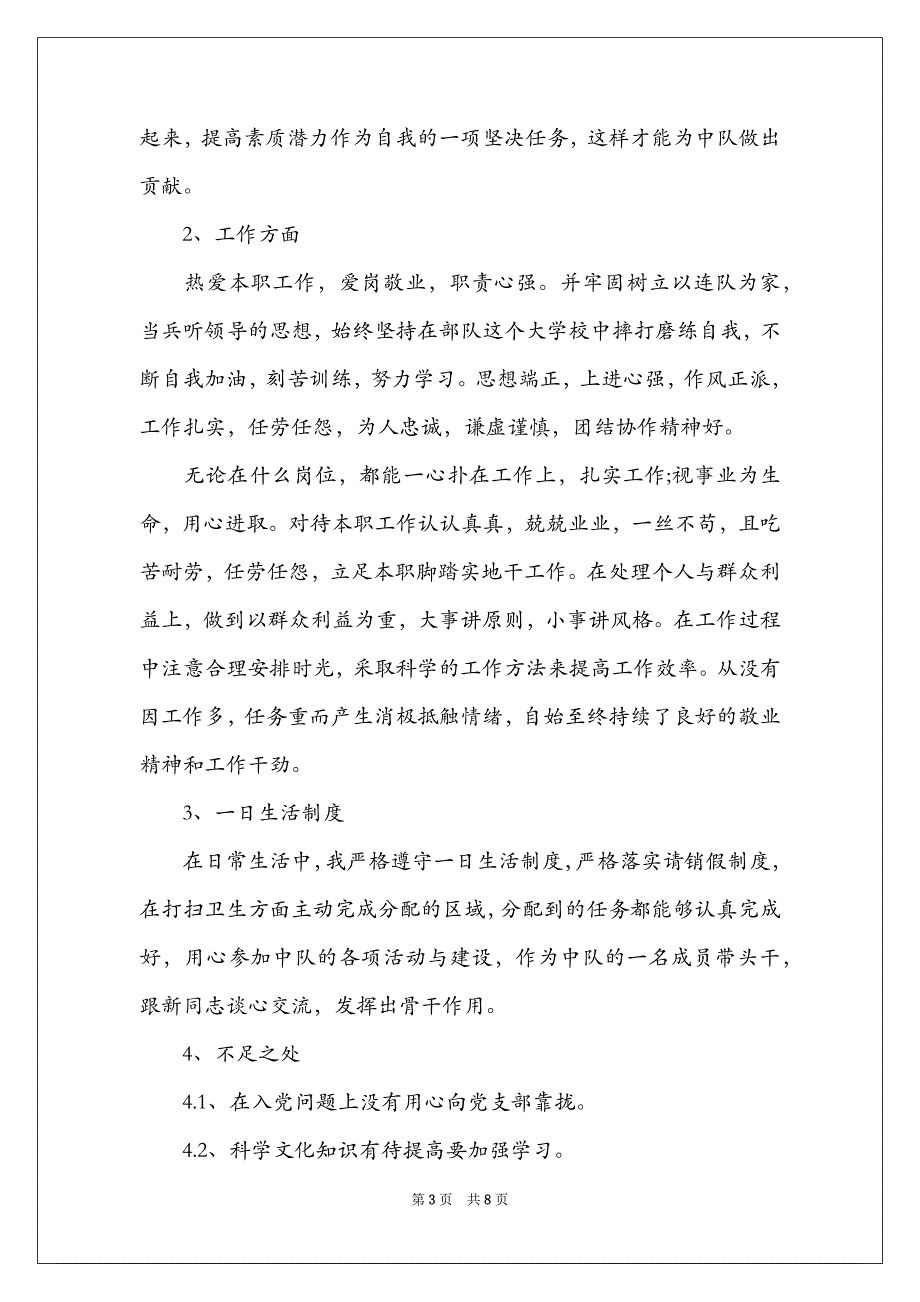 起来，提高素质潜力作为自我的一项坚决任务，这样才能为中队做出
贡献。
2、工作方面
热爱本职工作，爱岗敬业，职责心强。并牢固树立以连队为家，
当兵听领导的思想，始终坚持在部队这个大学校中摔打磨练自我，不
断自我加油，刻苦训练，努力学习。思想端正，上进心强，作风正派，
工作扎实，任劳任怨，为人忠诚，谦虚谨慎，团结协作精神好。
无论在什么岗位，都能一心扑在工作上，扎实工作;视事业为生
命，用心进取。对待本职工作认认真真，兢兢业业，一丝不苟，且吃
苦耐劳，任劳任怨，立足本职脚踏实地干工作。在处理个人与群众利
益上，做到以群众利益为重，大事讲原则，小事讲风格。在工作过程
中注意合理安排时光，采取科学的工作方法来提高工作效率。从没有
因工作多，任务重而产生消极抵触情绪，自始至终持续了良好的敬业
精神和工作干劲。
3、一日生活制度
在日常生活中，我严格遵守一日生活制度，严格落实请销假制度，
在打扫卫生方面主动完成分配的区域，分配到的任务都能够认真完成
好，用心参加中队的各项活动与建设，作为中队的一名成员带头干，
跟新同志谈心交流，发挥出骨干作用。
4、不足之处
4.1、在入党问题上没有用心向党支部靠拢。
4.2、科学文化知识有待提高要加强学习。
第 3 页 共 8 页